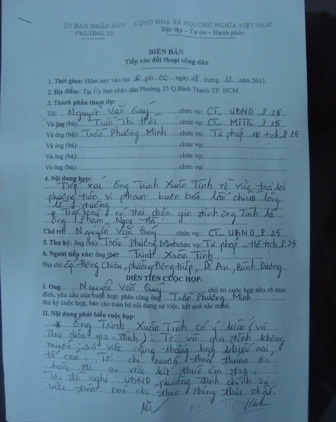 ỦY BAN NHÂN DÂN CỘNG HÒA XÃ HỘI CHỦ NGHĨA VIỆT NAM
PHƯỜNG 25 Độc lập - Tự do - Hạnh phúc
BIÊN BẢN
Tiếp xúc đối thoại công dân
1. Thời gian: Hôm nay vào lúc giờ 00 ngày 18 tháng 12 năm 2013.
2. Địa điểm: Tại Ủy ban nhân dân Phường 25 Q.Bình Thạnh TP. HCM.
3. Thành phần tham dự:
Tôi: Nguyễn Văn Quý chức vụ: CT. UBND P.25
Và ông (bà) Trần Thị chức vụ: CT. MTTQ P.25
Và ông (bà) Trần Phương Minh chức vụ: Tư pháp - Hộ tịch P.25
Và ông (bà): chức vụ:
Và ông (bà): chức vụ:
Và ông (bà): chức vụ:
4. Nội dung họp:
Tiếp xúc ông Trịnh Xuân Tính về việc trả lại
phương tiện vi phạm buôn bán lấn chiếm lòng
lề đường
đại diện gia đình ông Tính là
ông Phạm Ngọc
Chủ trì: Nguyễn Văn Quý chức vụ: CT. UBND P.25
5. Thư ký: ông (bà) Trần Phương Minh chức vụ: Tư pháp - Hộ tịch P.25
6. Người tiếp xúc: ông (bà) Trịnh Xuân Tính
Địa chỉ: Đông Chiêu, phường Đông Hiệp, Dĩ An, Bình Dương.
DIỄN TIẾN CUỘC HỌP:
I. Ông Nguyễn Văn Quý chủ trì cuộc họp nêu rõ mục
đích, yêu cầu của cuộc họp, phân công ông Trần Phương Minh
thư ký cuộc họp, báo cáo toàn bộ nội dung sự việc, kết quả xác minh.
II. Nội dung phát biểu cuộc họp:
* Ông Trịnh Xuân Tính có ý kiến (và
đại diện gia đình): Tôi và gia đình không
muốn sự việc căng thẳng hay khiếu nại,
tố cáo. Tôi chỉ muốn
sự việc kết thúc êm đẹp.
Tôi đề nghị UBND phường đính chính sự
việc trên báo chí theo đúng thực chất.